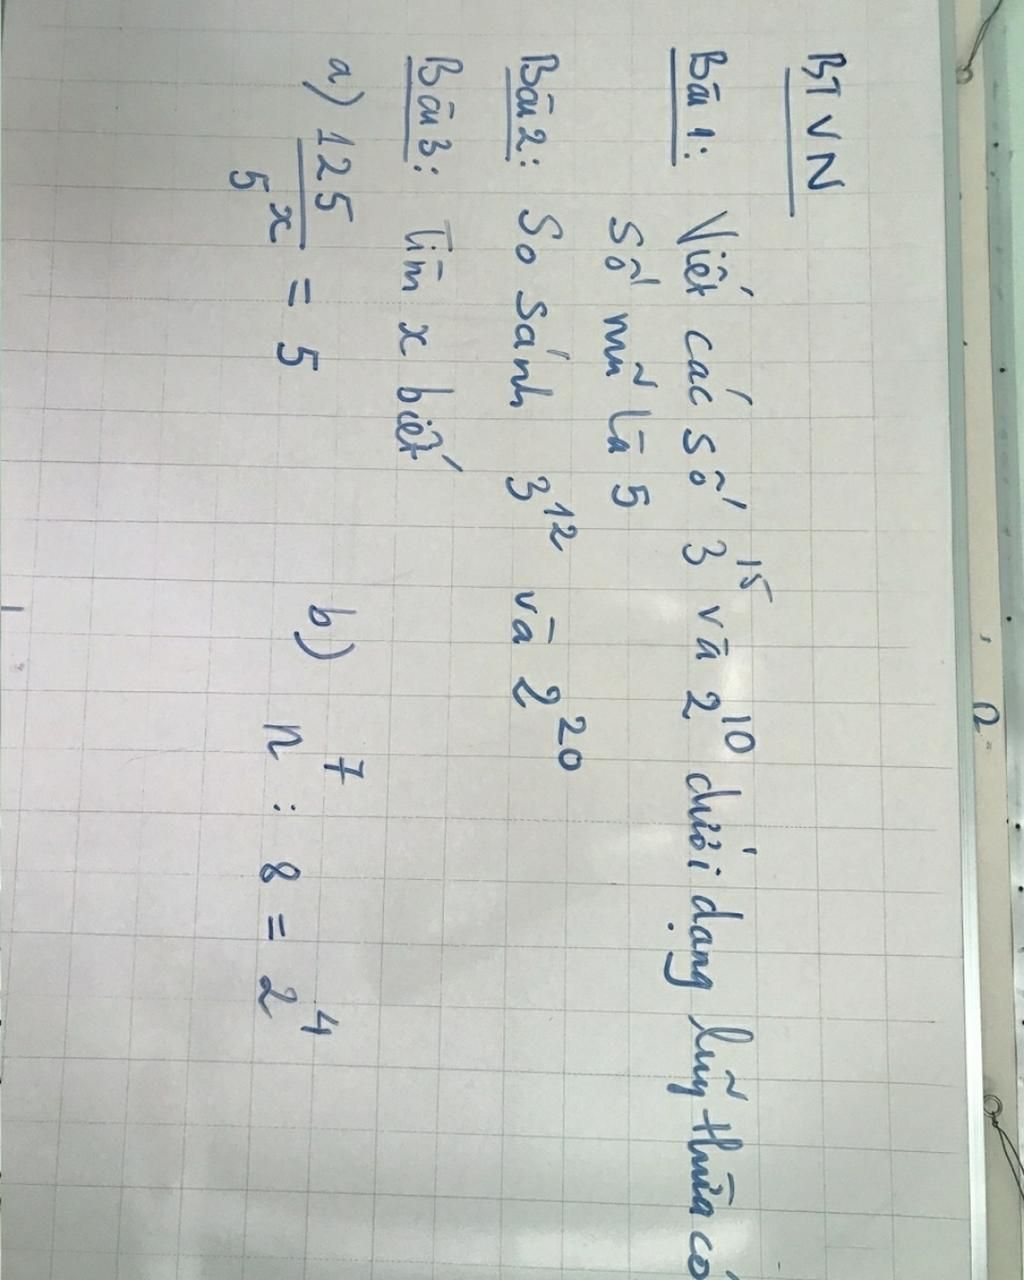 BTVN
Bài 1: Viết các số 3^15 và 2^10 dưới dạng luỹ thừa có
số mũ là 5
Bài 2: So sánh 3^12 và 2^20
Bài 3: Tìm x biết
a) 125/5^x = 5 b) n^7 : 8 = 2^4